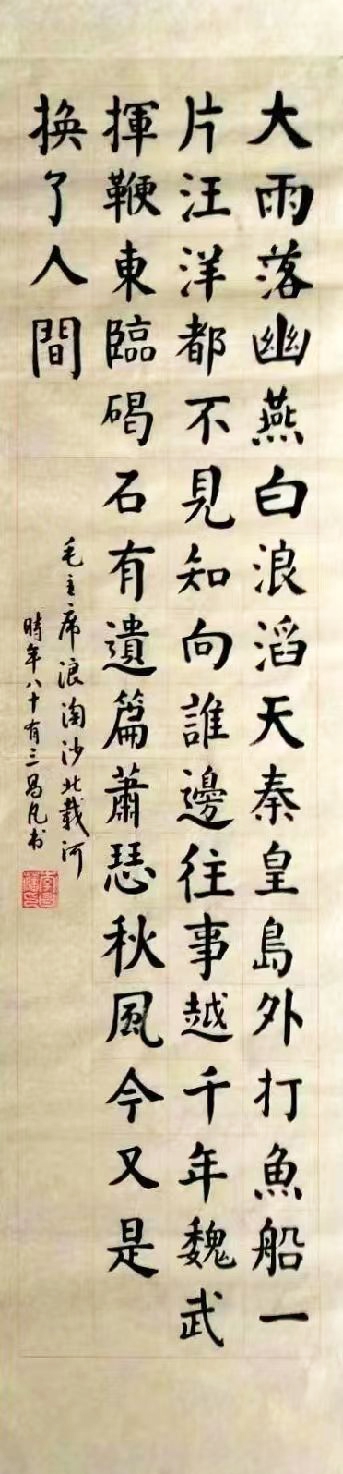 大雨落幽燕白浪滔天秦皇島外打魚船一
片汪洋都不見知向誰邊往事越千年魏武
揮鞭東臨碣石有遺篇蕭瑟秋風今又是
換了人間
毛主席浪淘沙北載河
時年八十有三昌凡书